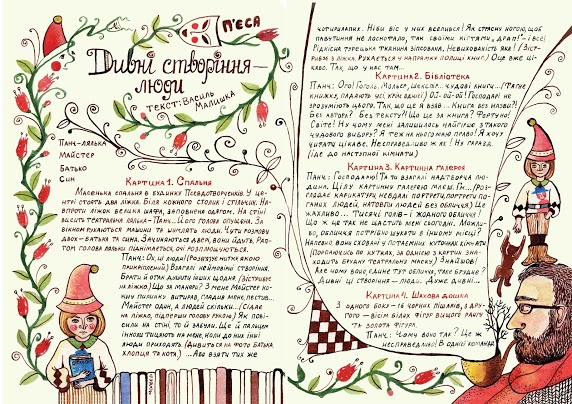 П'ЄСА
Дивні створіння—
люди
Текст: Василь
Малишка
Панч-лялька
Майстер
Батько
Син
Картина 1. Спальня
Маленька спальня в будинку Псевдотворчинів. У це-
нтрі стоять два ліжка. Біля кожного столик і стільчик. На-
впроти ліжок велика шафа, заповнена одягом. На стіні
висить театральна лялька—Панч. Його голова опущена. За
вікном рухаються машини та шумлять люди. Чути розмову
двох—батька та сина. Зачиняються двері, вони йдуть. Рап-
том голова ляльки піднімається, очі розплющуються.
Панч: Ох, ці люди! (Розв'язує нитки якою
прикріплений) Взагалі неймовірні створіння.
Брати й отак кидати інших щодня. (Зістрибує
на ліжко) Що за манери? З мене Майстер кож-
ну пилинку витирав, гладив мене, пестив...
Майстер один, а людей скільки... (Сідає
на ліжко, підперши голову рукою) Як пові-
сили на стіні, то й забули. Ще й пальцем
інколи тицяють на мене, коли до них інші
люди приходять (Дивиться на фото батька,
хлопця та кота) ... Або взяти тих же
чотирилапих. Ніби біс у них вселився! Як стрясне ногою, щоб
павутиння не лоскотало, так своїми кігтями „драп!"—і все!
Рідкісна турецька тканина зіпсована. Невихованість яка! (Зіст-
рибує з ліжка. Рухається у напрямку полиці книг) Оце вже ці-
каво. Так, що у нас там...
Картина 2. Бібліотека
Панч: Ого! Гоголь, Мольєр, Шекспір... чудові книги... (Тягне
книжку, падають усі, крім одної) Ой-ой-ой! Господарі не
зрозуміють цього. Так, що це я взяв... Книга без назви?!
Без автора? Без тексту?! Що це за книга? Фортуно!
Світе! Ну чому мені залишилось найгірше з такого
чудового вибору? Я теж на кого маю право! Я хочу
читати цікаве. Несправедливо як є! Ну гаразд.
(Іде до наступної кімнати)
Картина 3. Картинна галерея
Панч: Господарю! Та ти взагалі надтворча лю-
дина. Цілу картинну галерею маєш. Гм... (Роз-
глядає карикатури, невдалі портрети, портрети по-
ганих людей, натовпи людей без обличчя) Це
жахливо... Тисячі голів—і жодного обличчя!
Що ж так не щастить мені сьогодні. Можли-
во, обличчя потрібно шукати в іншому місці?
Напевно, вони сховані у потаємних куточках кімнати
(Порпаючись по кутках, за однією з картин зна-
ходить брудну театральну маску) Знайшов!
Але чому воно, єдине тут обличчя, таке брудне?
Дивні ці створіння—люди. Дуже дивні...
Картина 4. Шахова дошка
З одного боку—16 чорних пішаків, з дру-
гого—вісім білих фігур вищого рангу
та золота фігура.
Панч: Чому воно так? Це ж
несправедливо! В одній команді